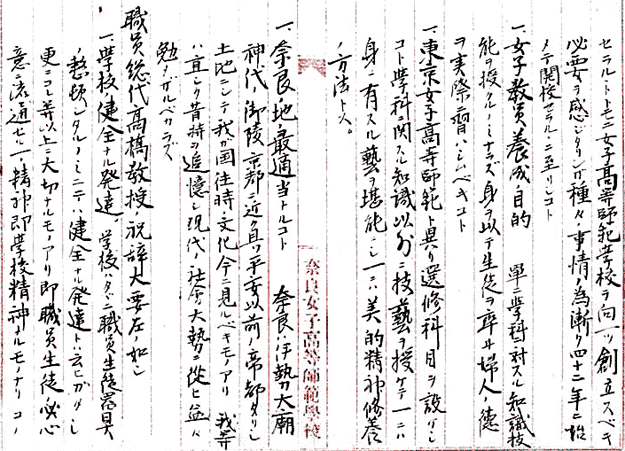 セラルヽトトモニ女子高等師範学校ヲ向一ツ創立スベキ
必要ヲ感ジタリシガ種々ノ事情ノ為漸ク四十二年ニ始
メテ開校セラルヽニ至リシコト
一、女子教員養成ノ目的 単ニ学科ニ対スル知識技
能ヲ授クルノミナラズ身ヲ以テ生徒ヲ率ヰ婦人ノ徳
ヲ実際ニ習ハシムベキコト
一、東京女子高等師範ト異リ選修科目ヲ設ケシ
コト學科ニ関スル知識以外ニ技藝ヲ授ケテ一ニハ
身ニ有スル藝ヲ堪能ニシ一ニハ美的精神修養
ノ方法トス。
奈良女子高等師範學校
一、奈良ノ地ノ最適当トナルコト 奈良ハ伊勢ノ大廟
神代ノ御陵京都ニ近ク且ツ平安以前ノ帝都タリシ
土地ニシテ我が国往時ノ文化今ニ見ルベキモノアリ 我等
ハ宜シク昔時ヲ追憶シ現代ノ社会ノ大勢ニ從ヒ益々
勉メザルベカラズ
職員総代高橋教授ノ祝辞大要左ノ如シ
一、學校ノ健全ナル発達 学校ハタヾニ職員生徒器具
ノ整頓シタルノミニテハ健全ナル発達トハ云ヒガタシ
更ニコレ等以上ニ大切ナルモノアリ即職員生徒ノ必心
意ノ流通セル一ノ精神即學校精神ナルモノナリ コノ